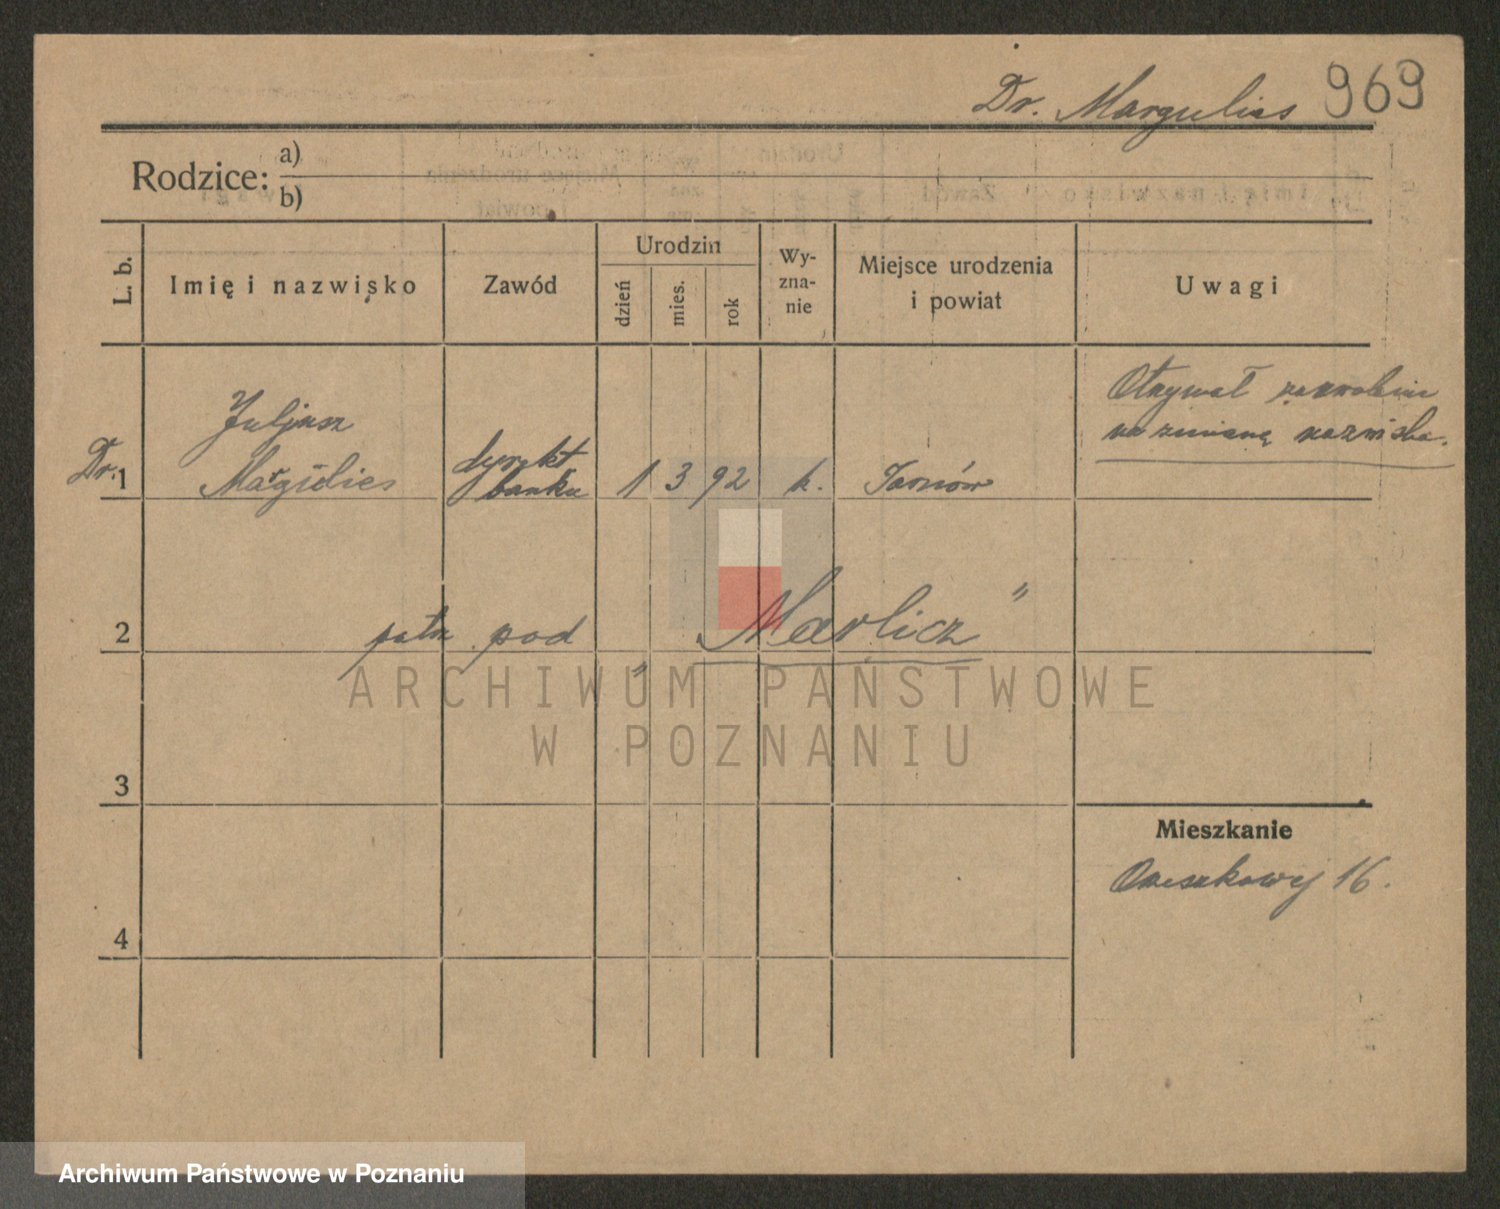 Dr. Margulies 969
Rodzice: a)
b)
L. b.
Imię i nazwisko
Zawód
Urodzin
dzień
mies.
rok
Wy-
zna-
nie
Miejsce urodzenia
i powiat
Uwagi
Otrzymał zezwolenie
na zmianę nazwiska.
Juljusz
Dr. 1 Margulies
dyrekt
banku
1 3 92 k. Tarnów
2 patrz pod „Marlicz”
ARCHIWUM PAŃSTWOWE
W POZNANIU
3
Mieszkanie
Orzeszkowej 16.
4
Archiwum Państwowe w Poznaniu